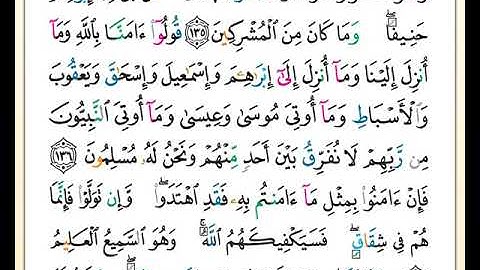 حَنِيفًاۖ وَمَا كَانَ مِنَ ٱلْمُشْرِكِينَ ١٣٥ قُولُوٓا۟ ءَامَنَّا بِٱللَّهِ وَمَآ
أُنزِلَ إِلَيْنَا وَمَآ أُنزِلَ إِلَىٰٓ إِبْرَٰهِـۧمَ وَإِسْمَٰعِيلَ وَإِسْحَٰقَ وَيَعْقُوبَ
وَٱلْأَسْبَاطِ وَمَآ أُوتِىَ مُوسَىٰ وَعِيسَىٰ وَمَآ أُوتِىَ ٱلنَّبِيُّونَ
مِن رَّبِّهِمْ لَا نُفَرِّقُ بَيْنَ أَحَدٍ مِّنْهُمْ وَنَحْنُ لَهُۥ مُسْلِمُونَ ١٣٦
فَإِنْ ءَامَنُوا۟ بِمِثْلِ مَآ ءَامَنتُم بِهِۦ فَقَدِ ٱهْتَدَوا۟ۖ وَّإِن تَوَلَّوْا۟ فَإِنَّمَا
هُمْ فِى شِقَاقٍۖ فَسَيَكْفِيكَهُمُ ٱللَّهُۚ وَهُوَ ٱلسَّمِيعُ ٱلْعَلِيمُ